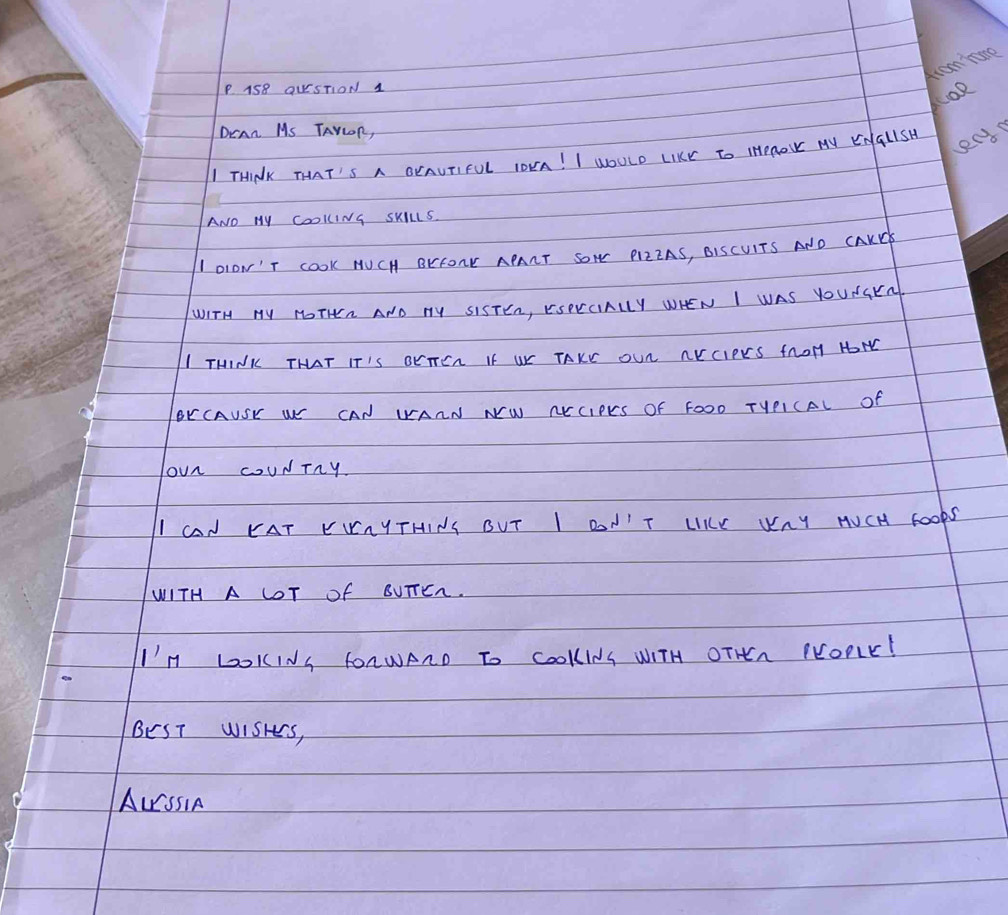 P. 158 QUESTION 1
DEAR MS TAYLOR,
I THINK THAT'S A BEAUTIFUL IDEA! I WOULD LIKE TO IMPROVE MY ENGLISH
AND MY COOKING SKILLS.
I DIDN'T COOK MUCH BEFORE APART SOME PIZZAS, BISCUITS AND CAKES
WITH MY MOTHER AND MY SISTER, ESPECIALLY WHEN I WAS YOUNGER.
I THINK THAT IT'S BETTER IF WE TAKE OUR RECIPES FROM HOME
BECAUSE WE CAN LEARN NEW RECIPES OF FOOD TYPICAL OF
OUR COUNTRY.
I CAN EAT EVERYTHING BUT I DON'T LIKE VERY MUCH FOODS
WITH A LOT OF BUTTER.
I'M LOOKING FORWARD TO COOKING WITH OTHER PEOPLE!
BEST WISHES,
ALESSIA
from time